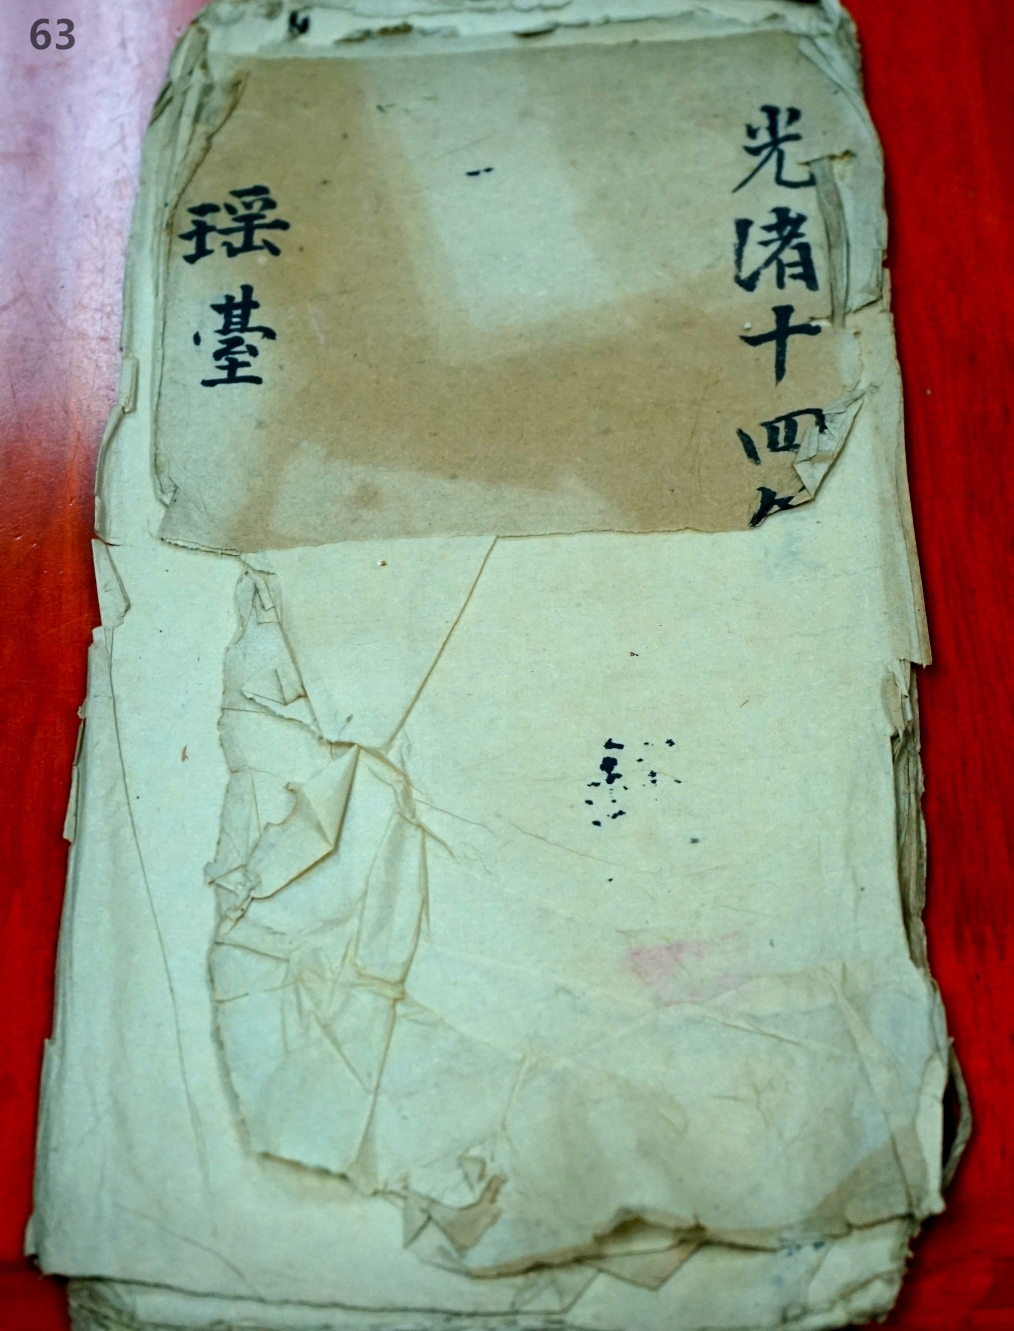 63
光渚十四
瑶臺